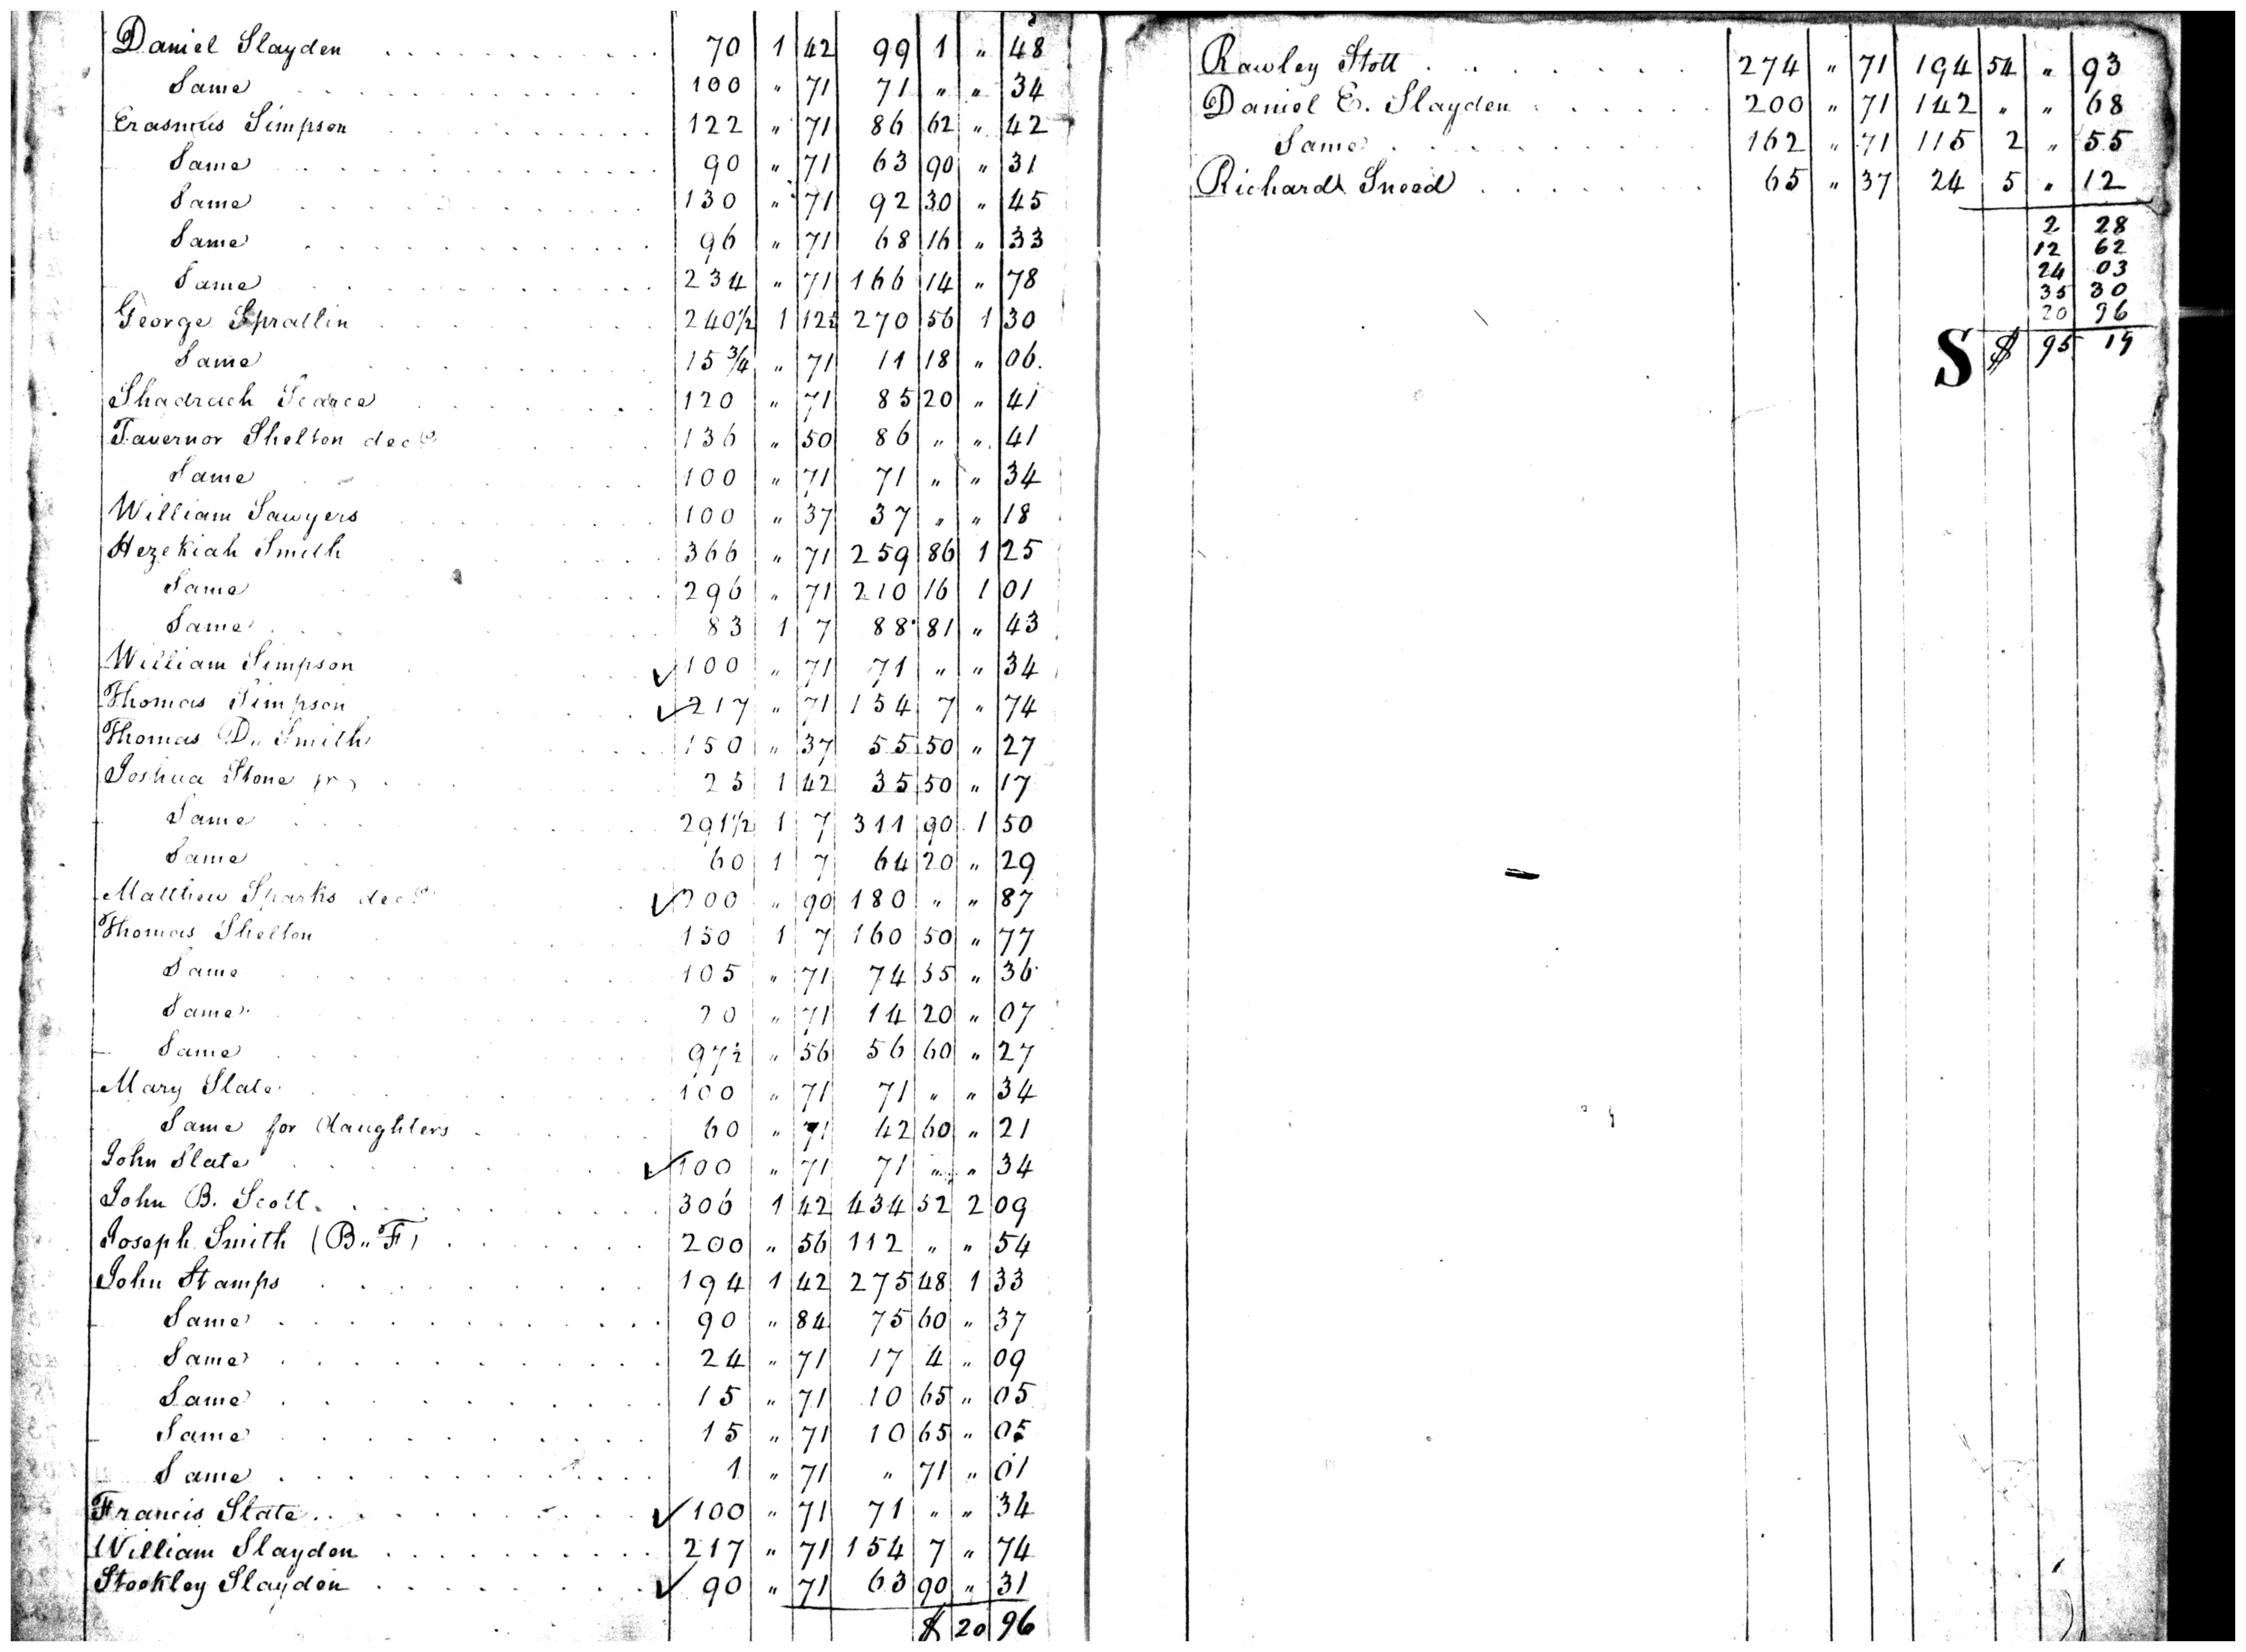 Daniel Slayden 70 1 42 99 1 " 48
Same 100 " 71 71 " " 34
Erasmus Simpson 122 " 71 86 62 " 42
Same 90 " 71 63 90 " 31
Same 130 " 71 92 30 " 45
Same 96 " 71 68 16 " 33
Same 234 " 71 166 14 " 78
George Spratlin 240½ 1 12½ 270 56 1 30
Same 15¾ " 71 11 18 " 06
Shadrach Scarce 120 " 71 85 20 " 41
Tavernor Shelton decd 136 " 50 86 " " 41
Same 100 " 71 71 " " 34
William Sawyers 100 " 37 37 " " 18
Hezekiah Smith 366 " 71 259 86 1 25
Same 296 " 71 210 16 1 01
Same 83 1 7 88 81 " 43
William Simpson ✓ 100 " 71 71 " " 34
Thomas Simpson ✓ 217 " 71 154 7 " 74
Thomas D. Smith 150 " 37 55 50 " 27
Joshua Stone jr 25 1 42 35 50 " 17
Same 291½ 1 7 311 90 1 50
Same 60 1 7 64 20 " 29
Matthew Sparks decd ✓ 200 " 90 180 " " 87
Thomas Shelton 150 1 7 160 50 " 77
Same 105 " 71 74 55 " 36
Same 20 " 71 14 20 " 07
Same 97½ " 56 56 60 " 27
Mary Slate 100 " 71 71 " " 34
Same for daughters 60 " 71 42 60 " 21
John Slate ✓ 100 " 71 71 " " 34
John B. Scott 306 1 42 434 52 2 09
Joseph Smith (B.. F) 200 " 56 112 " " 54
John Stamps 194 1 42 275 48 1 33
Same 90 " 84 75 60 " 37
Same 24 " 71 17 4 " 09
Same 15 " 71 10 65 " 05
Same 15 " 71 10 65 " 05
Same 1 " 71 " 71 " 01
Francis Slate ✓ 100 " 71 71 " " 34
William Slaydon 217 " 71 154 7 " 74
Stockley Slaydon ✓ 90 " 71 63 90 " 31
$ 20 96
Rawley Stott 274 " 71 194 54 " 93
Daniel E. Slayden 200 " 71 142 " " 68
Same 162 " 71 115 2 " 55
Richard Sneed 65 " 37 24 5 " 12
2 28
12 62
24 03
35 30
20 96
S $ 95 19